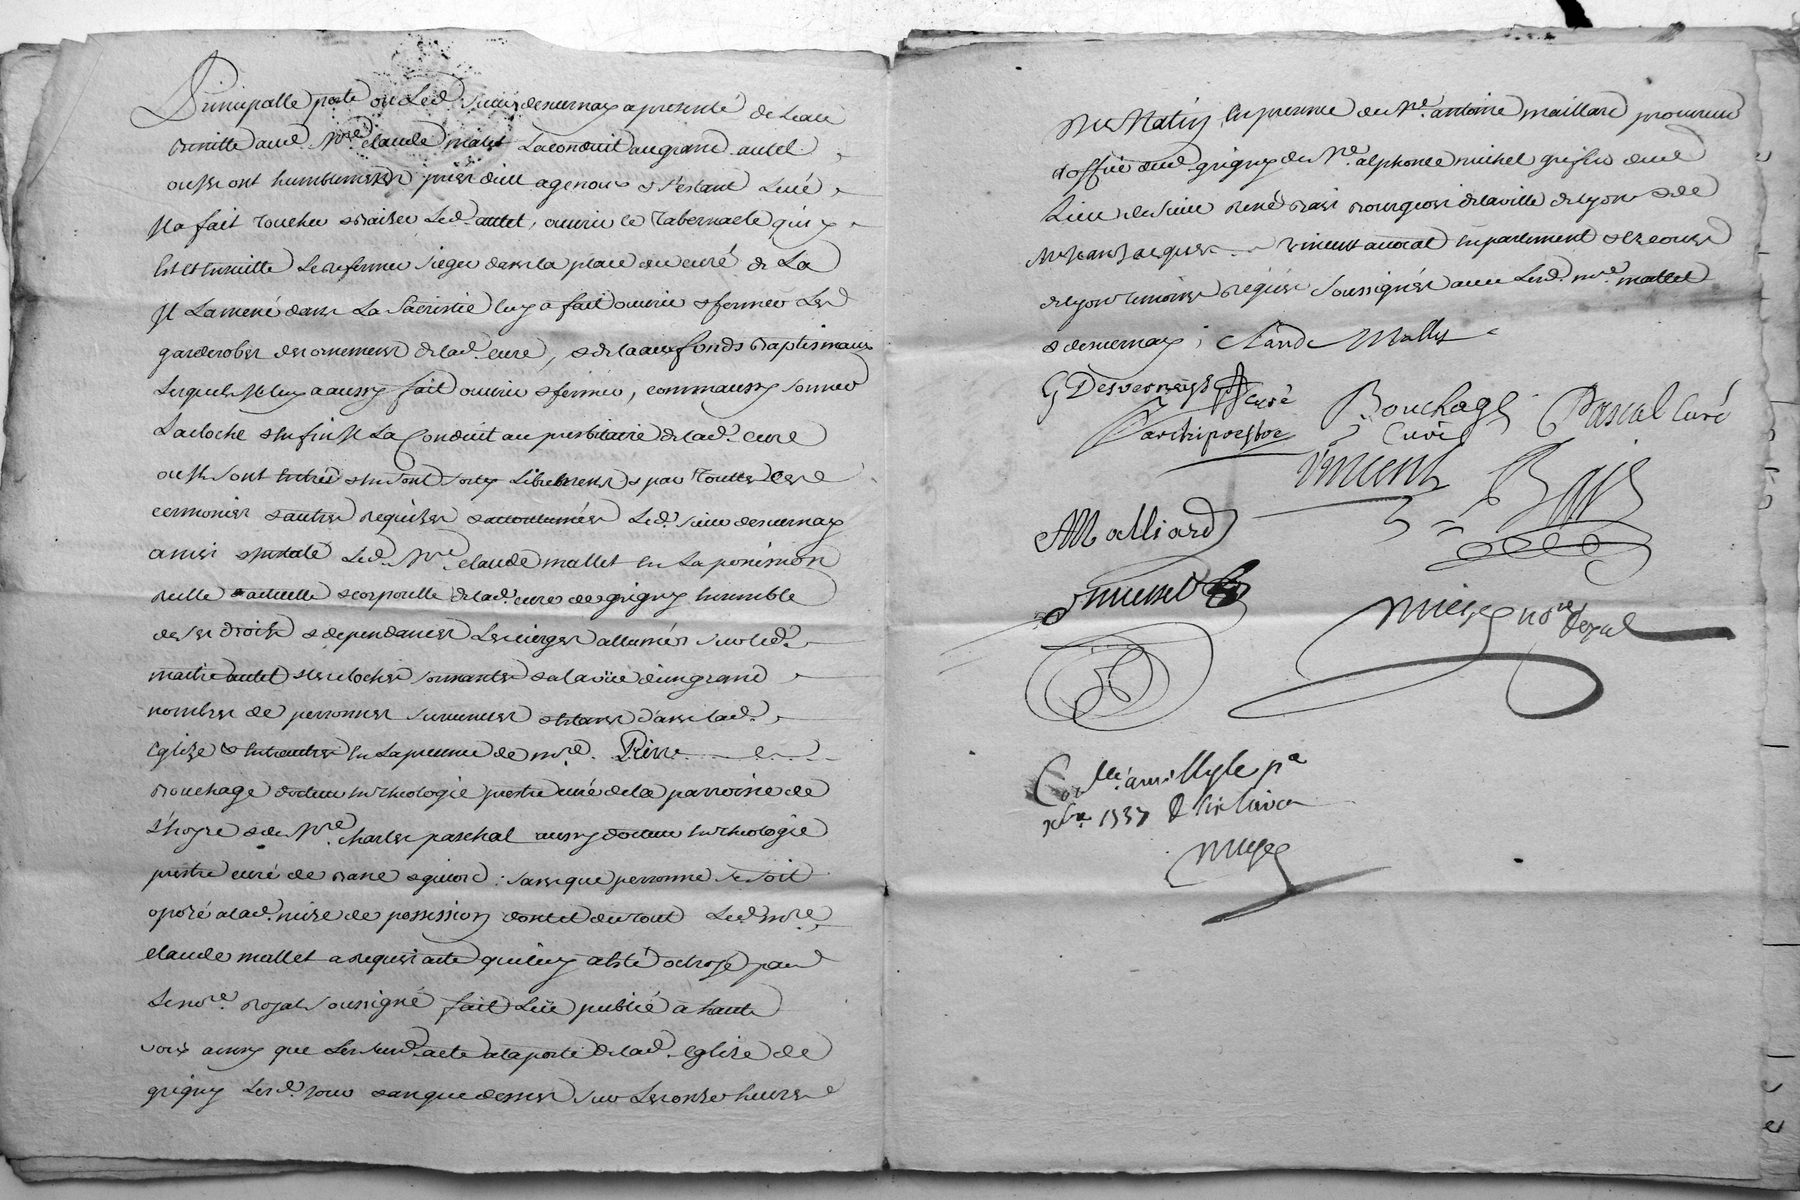 Principalle porte ou Led. sieur desvernay a presenté de Leau
benitte aud. Mre. claude malet La conduit au grand autel
ou ils ont humblement prier dieu a genoux & s'estant Levé
Il a fait toucher & baiser Led. autel, ouvrir le Tabernacle qui y
est ensuitte Le refermer sieger dans la place du curé de La
Il La mené dans La Sacristie luy a fait ouvrir & fermer Les
garderobes des ornemens de lad. cure, & de la aux fonds baptismaux
Lesquels Il luy a aussy fait ouvrir & fermer, comm aussy sonner
La cloche & enfin Il La Conduit au presbitaire de lad. cure
ou Ils sont entrés & en sont sorty Librement & par Touttes Les
ceremonies & autres requises & accoutumées Led. sieur desvernay
a mis & installé Led. Mre. claude mallet en La possession
reelle & actuelle & corporelle de lad. cure de grigny ensemble
de ses droits & dependances Les cierges allumés sur led.
maitre autel & les cloches sonnantes & a la vüe d'un grand
nombre de personnes survenues & etans dans lad.
Eglise & en la presence de mre. Pierre
bouchage docteur en theologie prestre curé de la parroisse de
& de Mre. charles paschal aussy docteur en theologie
prestre curé de : sans que personne se soit
oposé a lad. mise de possession dont et du tout Led. mre.
claude mallet a requis acte qui luy a eté octroyé par
Le nore. royal soussigné fait Leüe publié a haute
voix ainsy que Lesd. acte a la porte de lad. Eglise de
grigny Lesd. jour & an que dessus sur Les onze heures
du Matin, en presence de Mre. antoine maillard procureur
d'office dud. grigny de Mre. alphonce michel greffier dud.
Lieu de sieur René bourgeois de la ville de lyon & de
Mre Jean Jacques vincent avocat en parlement & es cours
de lyon temoins requis soussignés avec Lesd. mre. mallet
& desvernay, Claude Mallet
G Desvernays curé
archiprestre
Bouchage
Curé
Pascal Curé
Vincent
Malliard
michel
nore Royal
Conlle. a millery le
xbre 1737